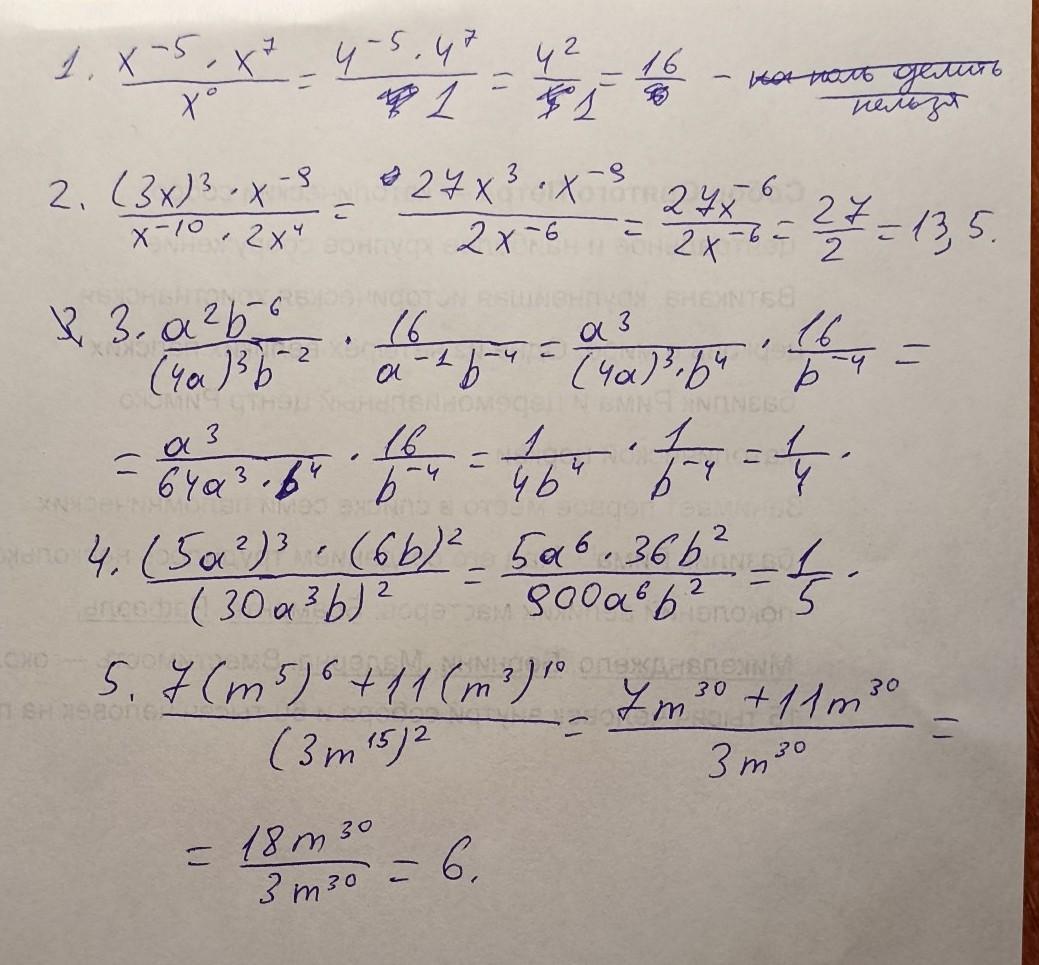 1. (x⁻⁵ · x⁷)/x⁰ = (4⁻⁵ · 4⁷)/1 = 4²/1 = 16 - на ноль делить нельзя
2. ((3x)³ · x⁻⁹)/(x⁻¹⁰ · 2x⁴) = (27x³ · x⁻⁹)/(2x⁻⁶) = (27x⁻⁶)/(2x⁻⁶) = 27/2 = 13,5.
3. (a²b⁻⁶)/((4a)³b⁻²) · 16/(a⁻¹b⁻⁴) = a³/((4a)³ · b⁴) · 16/b⁻⁴ =
= a³/(64a³ · b⁴) · 16/b⁻⁴ = 1/(4b⁴) · 1/b⁻⁴ = 1/4.
4. ((5a²)³ · (6b)²)/(30a³b)² = (5a⁶ · 36b²)/(900a⁶b²) = 1/5.
5. (7(m⁵)⁶ + 11(m³)¹⁰)/(3m¹⁵)² = (7m³⁰ + 11m³⁰)/(3m³⁰) =
= (18m³⁰)/(3m³⁰) = 6.